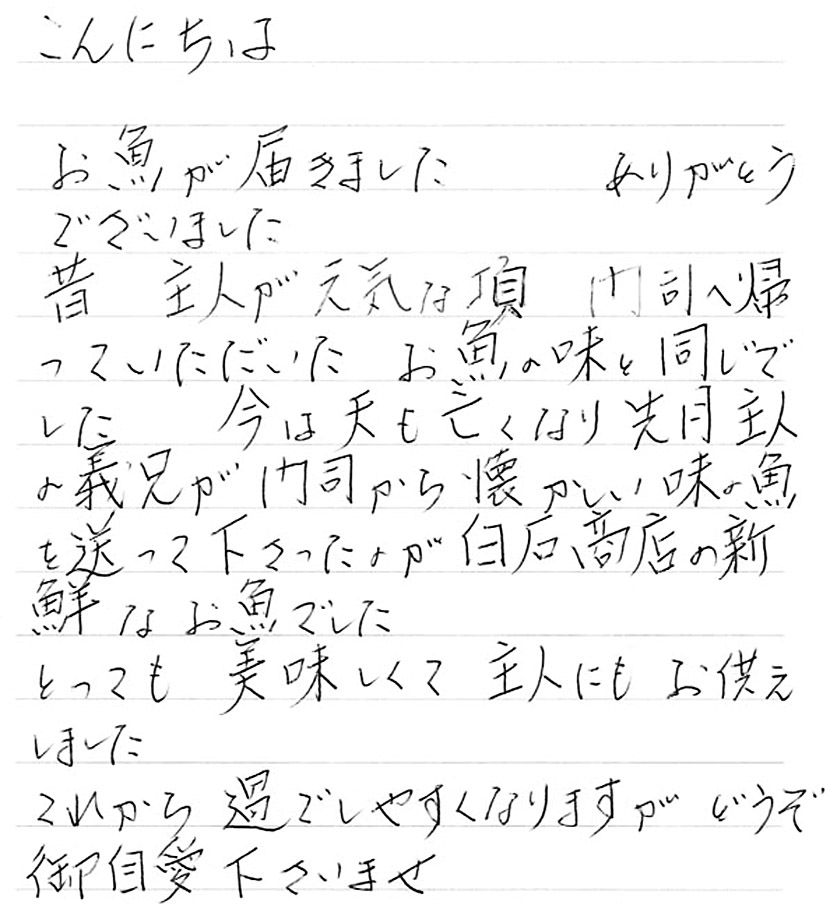 こんにちは
お魚が届きました　ありがとう
ございました
昔　主人が元気な項　門司へ帰
っていただいた　お魚の味と同じで
した　今は夫も亡くなり先月主人
の義兄が門司から懐かしい味の魚
を送って下さったのが白石商店の新
鮮なお魚でした
とっても　美味しくて　主人にも　お供え
しました
これから　過ごしやすくなりますが　どうぞ
御自愛下さいませ